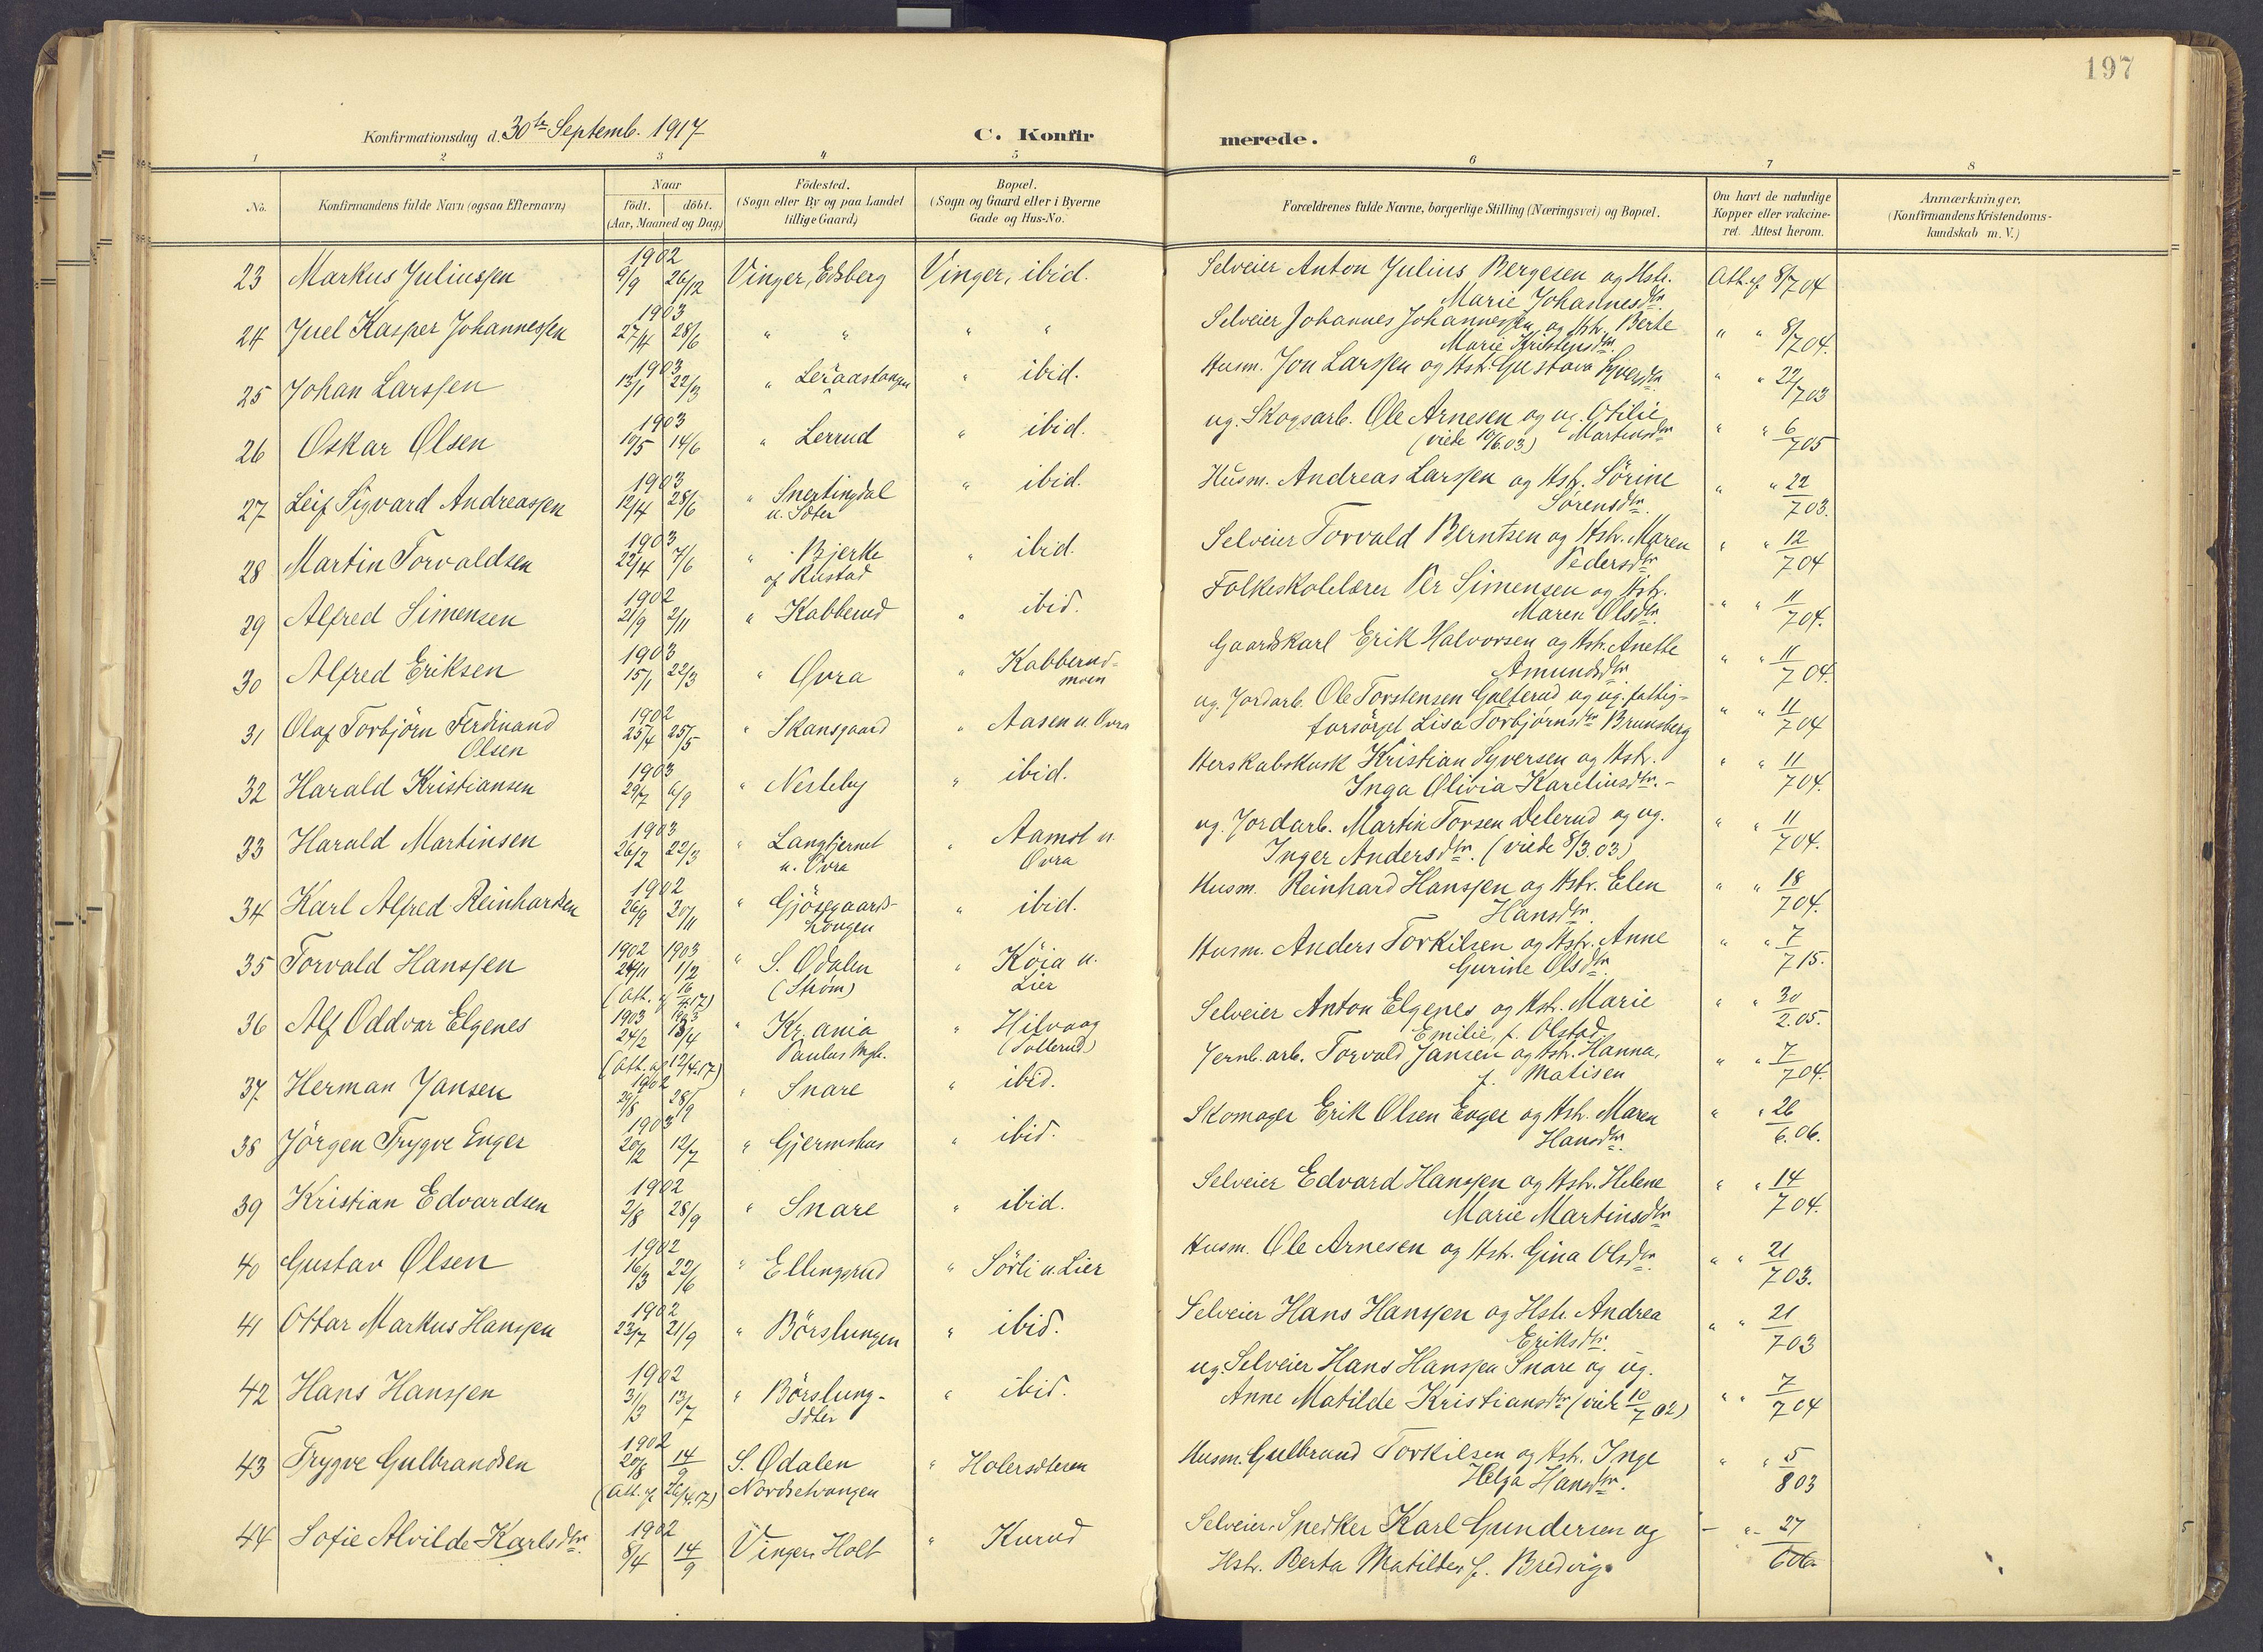 197
Konfirmationsdag d. 30te Septemb. 1917
C. Konfirmerede.
1 2 3 4 5 6 7 8
No.
Konfirmandens fulde Navn (ogsaa Efternavn)
Naar
födt. döbt.
(Aar, Maaned og Dag)
Födested.
(Sogn eller By og paa Landet
tillige Gaard)
Bopæl.
(Sogn og Gaard eller i Byerne
Gade og Hus-No.
Forældrenes fulde Navne, borgerlige Stilling (Næringsvei) og Bopæl.
Om havt de naturlige
Kopper eller vakcine-
ret. Attest herom.
Anmærkninger.
(Konfirmandens Kristendoms-
kundskab m. V.)
23 Markus Juliussen 1902 9/9 26/12 Vinger, Edsberg Vinger, ibid. Selveier Anton Julius Bergesen og Hstr. Att. af 8/7 04
Marie Johannesdtr
24 Juel Kasper Johannessen 1903 27/4 28/6 " " " " Selveier Johannes Johannessen og Hstr. Berte " " 8/7 04.
Marie Kristensdtr.
25 Johan Larssen 1903 13/1 22/3 " Leraastangen " ibid. Husm. Jon Larssen og Hstr. Gustava Syversdtr. " " 22/7 03
26 Oskar Olsen 1903 10/5 14/6 " Lerrud " ibid. ug. Skogsarb. Ole Arnesen og ug. Otilie " " 6/7 05
(viede 10/6.03) Martinsdtr
27 Leif Sigvard Andreassen 1903 12/4 28/6 " Snertingdal " ibid. Husm. Andreas Larssen og Hstr. Sörine " " 22/7 03.
u. Sæter Sörensdtr.
28 Martin Torvaldsen 1903 22/4 7/6 " Bjerke " ibid. Selveier Torvald Berntsen og Hstr. Maren " " 12/7 04
af Rustad Pedersdtr
29 Alfred Simensen 1902 21/9 2/11 " Kabberud " ibid. Folkeskolelærer Per Simensen og Hstr. " " 11/7 04.
Maren Olsdtr.
30 Alfred Eriksen 1903 15/1 22/3 " Øvra " Kabberud- Gaardskarl Erik Halvorsen og Hstr. Anette " " 11/7 04.
moen Amundsdtr.
31 Olaf Torbjörn Ferdinand 1902 25/4 25/5 " Skansgaard " Aasen u. Øvra ug. Jordarb. Ole Torstensen Galterud og ug. fattig- " " 11/7 04
Olsen forsörget Lisa Torbjørnsdtr Brunsberg
32 Harald Kristiansen 1903 29/7 6/9 " Nesteby " ibid. Herskabskusk Kristian Syversen og Hstr. " " 11/7 04.
Inga Olivia Kareliusdtr. -
33 Harald Martinsen 1903 26/2 22/3 " Langtjernet " Aamot u. ug. Jordarb. Martin Torsen Delerud og ug. " " 11/7 04.
u. Øvra Øvra Inger Andersdtr. (viede 8/3.03)
34 Karl Alfred Reinhardsen 1902 26/9 20/11 " Gjösegaards- " ibid. Husm. Reinhard Hanssen og Hstr. Elen " " 18/7 04.
kongen Hansdtr.
35 Torvald Hanssen 1902 24/11 1903 1/2 " S. Odalen " Köia u. Husm. Anders Torkilsen og Hstr. Anne " " 7/7 15.
(Att. af 16/4 17) (Strøm) Lier Gurine Olsdtr.
36 Alf Oddvar Elgenes 1903 24/2 1903 13/4 " Kr.ania " Hilvaag Selveier Anton Elgenes og Hstr. Marie " " 30/2.05.
(Att. af 12/4.17) Paulus Mgh. (Sollerud) Emilie, f. Olstad
37 Herman Jansen 1902 29/8 28/9 " Snare " ibid. Jernb. arb. Torvald Jansen og Hstr. Hanna, " " 7/7 04.
f. Matisen
38 Jörgen Trygve Enger 1903 20/2 12/7 " Gjermshus " ibid. Skomager Erik Olsen Enger og Hstr. Maren " " 26/6.06.
Hansdtr.
39 Kristian Edvardsen 1902 2/8 28/9 " Snare " ibid. Selveier Edvard Hanssen og Hstr. Helene " " 14/7 04.
Marie Martinsdtr
40 Gustav Olsen 1902 16/3 22/6 " Ellingsrud " Sörli u. Lier Husm. Ole Arnesen og Hstr. Gina Olsdtr. " " 21/7 03.
41 Ottar Markus Hanssen 1902 23/7 21/9 " Börslungen " ibid. Selveier Hans Hanssen og Hstr. Andrea " " 21/7 03
Eriksdtr.
42 Hans Hanssen 1902 31/3 13/7 " Börslung- " ibid. ug. Selveier Hans Hanssen Snare og ug. " " 7/7 04
sæter Anne Matilde Kristiansdtr (viede 10/7 02)
43 Trygve Gulbrandsen 1902 20/8 14/9 S. Odalen " Holersæteren Husm. Gulbrand Torkilsen og Hstr. Inge " " 5/8 03
(Att. af 26/4.17) Nordsetvangen Helga Hansdtr.
44 Sofie Alvilde Karlsdtr. 1902 8/4 14/9 Vinger Holt " Kurud Selveier, Snedker Karl Gundersen og - " 27/6 06
Hstr. Berta Matilde, f. Bredvig.